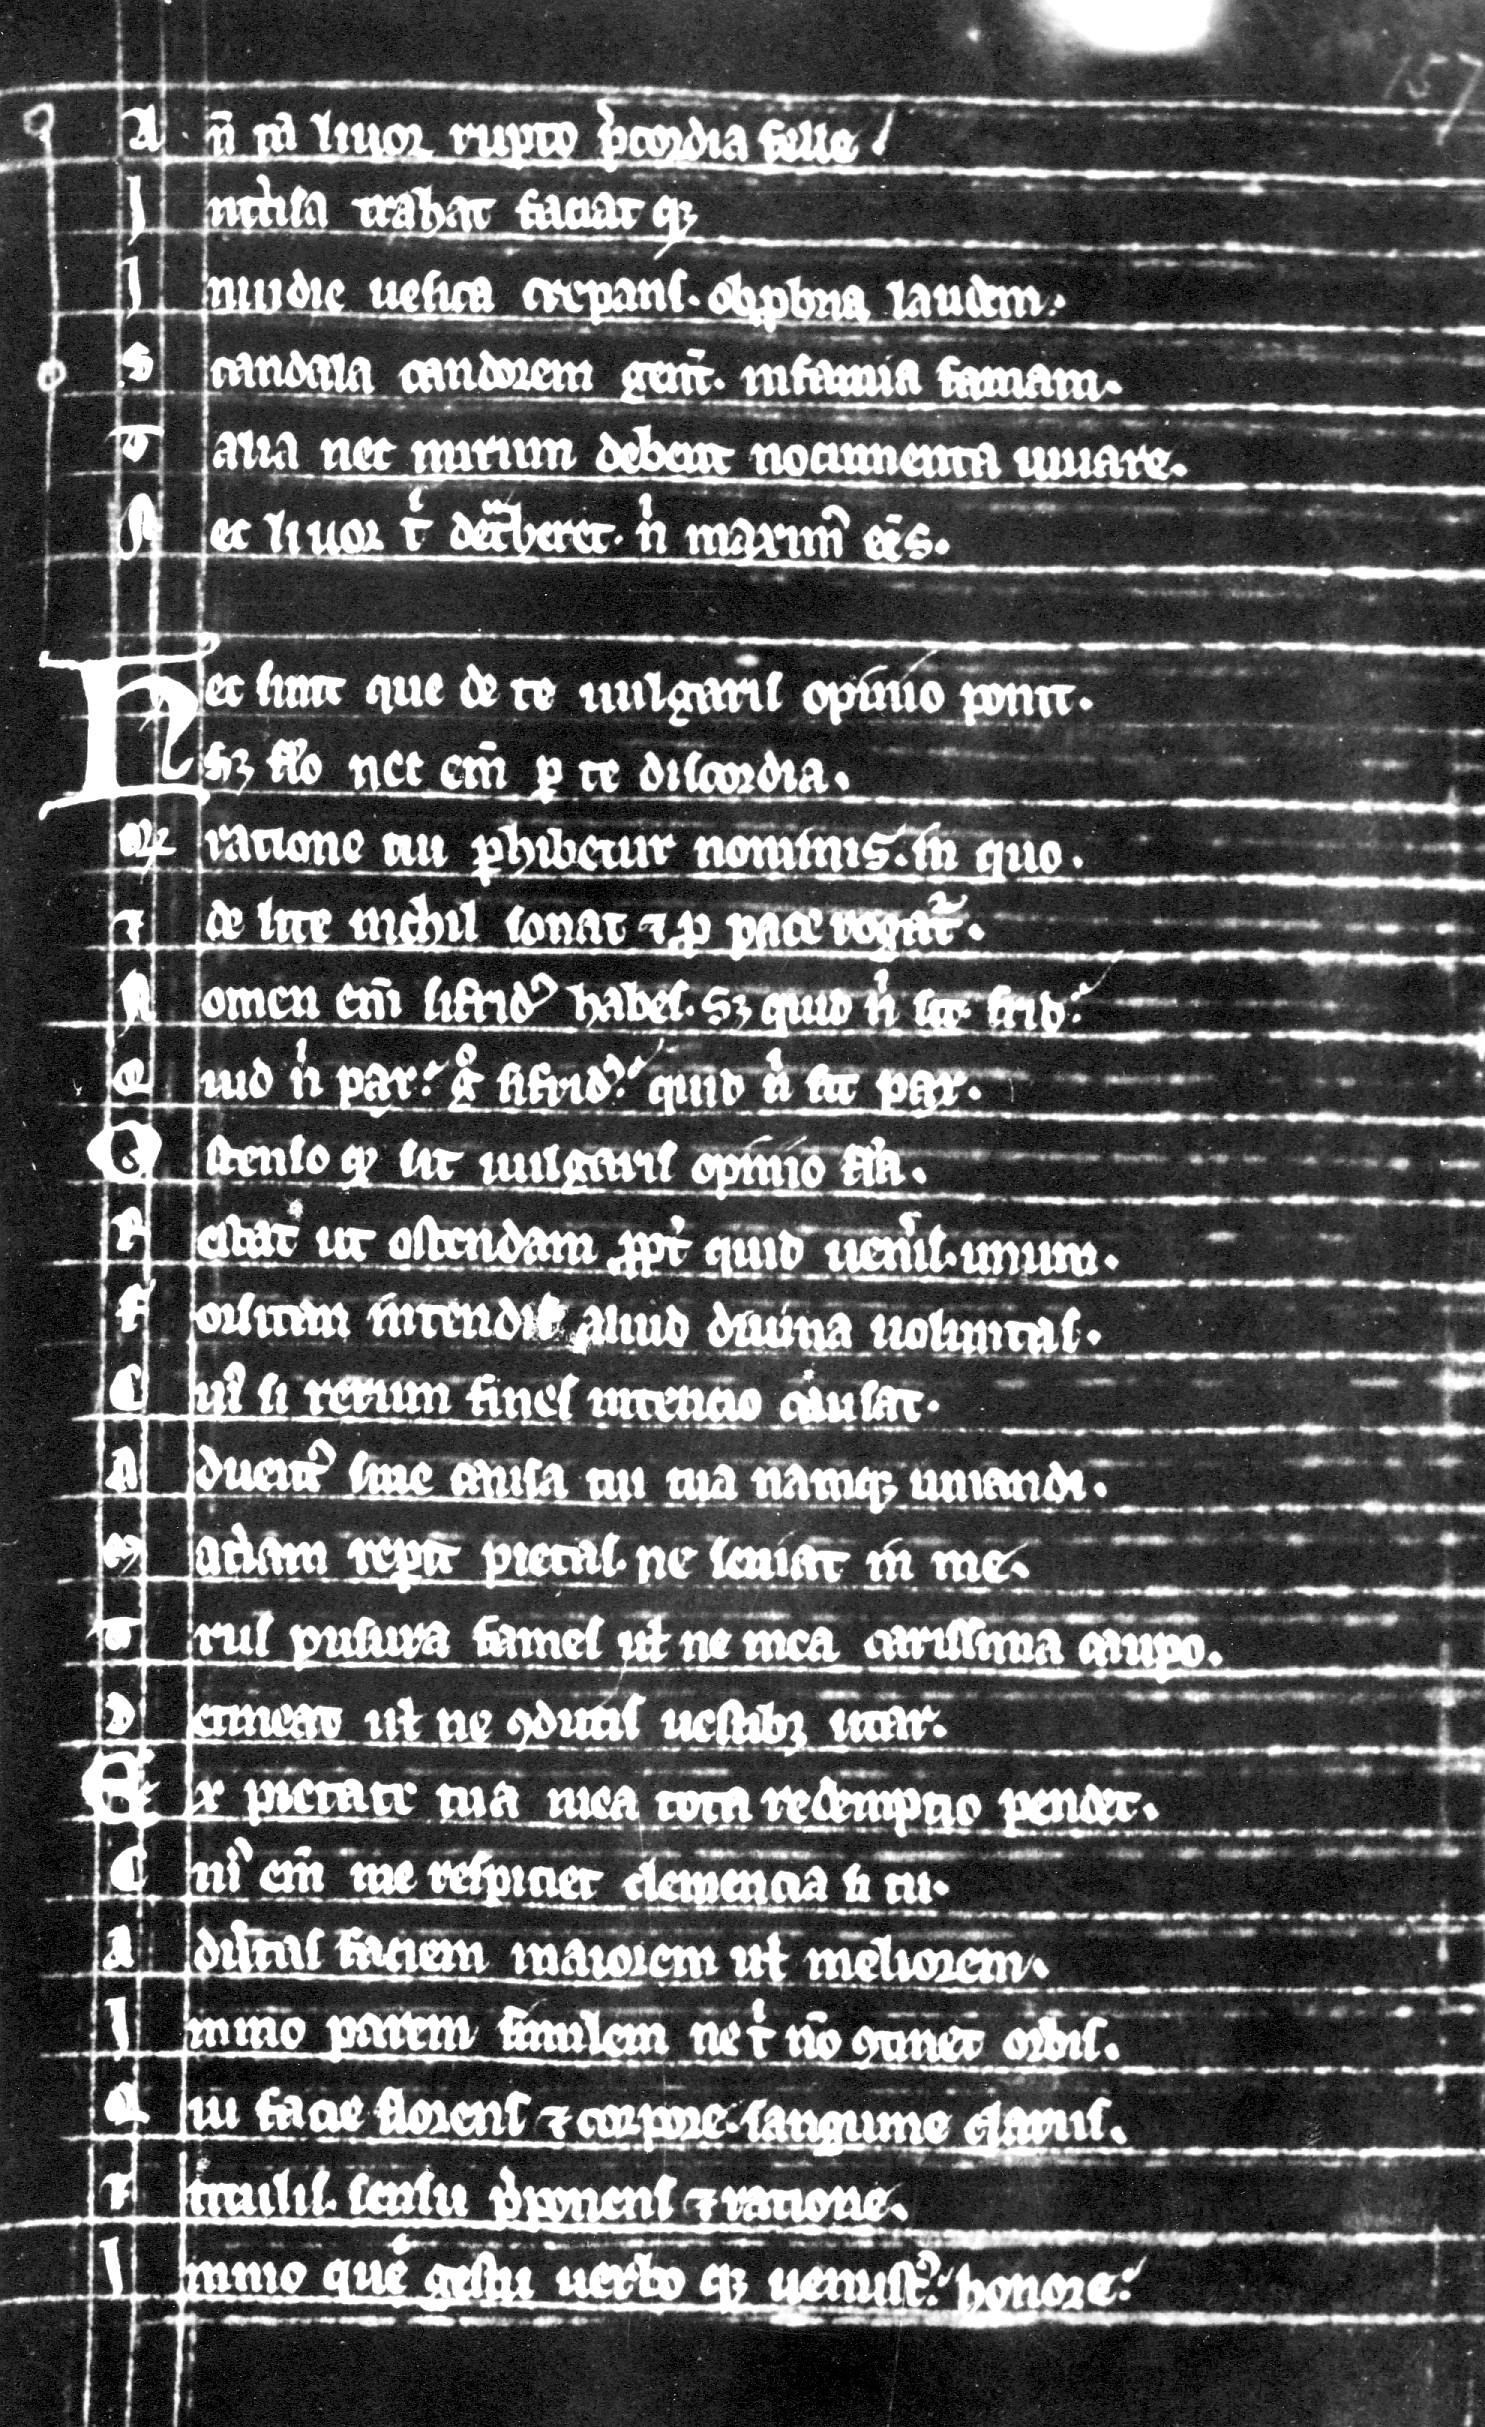 157
A n̄ nā liuor rupto p̄cordia felle
I ntˀisa trahat faciat qꝫ
I nuidie uesica crepans. obp̱bria laudem.
S candala candorem geñt. infamia famam.
T alia nec mirum debent nocumenta iuuare.
N ec liuor t̄ detᵃheret. nⁱ maximꝰ eēs.
H ec sunt que de te uulgaris opinio ponit.
sꝫ flˀo nec em̄ ꝑ te discordia.
Q ratione tui ꝓhibetur nominis. in quo.
⁊ de lite nichil sonat ⁊ ꝓ pace rogat᷑.
N omen em̄ sifridꝰ habes. Sꝫ quid nⁱ sit. frid᷑
Q uid nⁱ pax. gͦ sifridꝰ quid nⁱ sit pax.
O stenso qꝫ sit uulgaris opinio fama.
R estat ut ostendam ꝓpt᷑ quid ueneris. unum.
F orsitan intendit aliud diuina uoluntas.
C uiꝰ si rerum fines intencio causat.
A duentꝰ sine causa tui tua namqꝫ iuuandi.
M ateriam reperit pietas. ne seuiat in me.
T rus pusura fames ul̄ ne mea carissima caupo.
D etineat ul̄ ne ꝯductis uestibꝫ utar.
E x pietate tua mea tota redemptio pendet.
C uiꝰ em̄ me respiciet clemencia si tu.
A duertas faciem maiorem ul̄ meliorem.
I mmo parem similem ne tⁱ nō ꝯtinet orbis.
Q ui facie florens ⁊ corpore. sanguine clarus.
⁊ titulis. sensu p̄ponens ⁊ ratione.
I mmo quē gestu uerbo qꝫ uenustꝰ honore